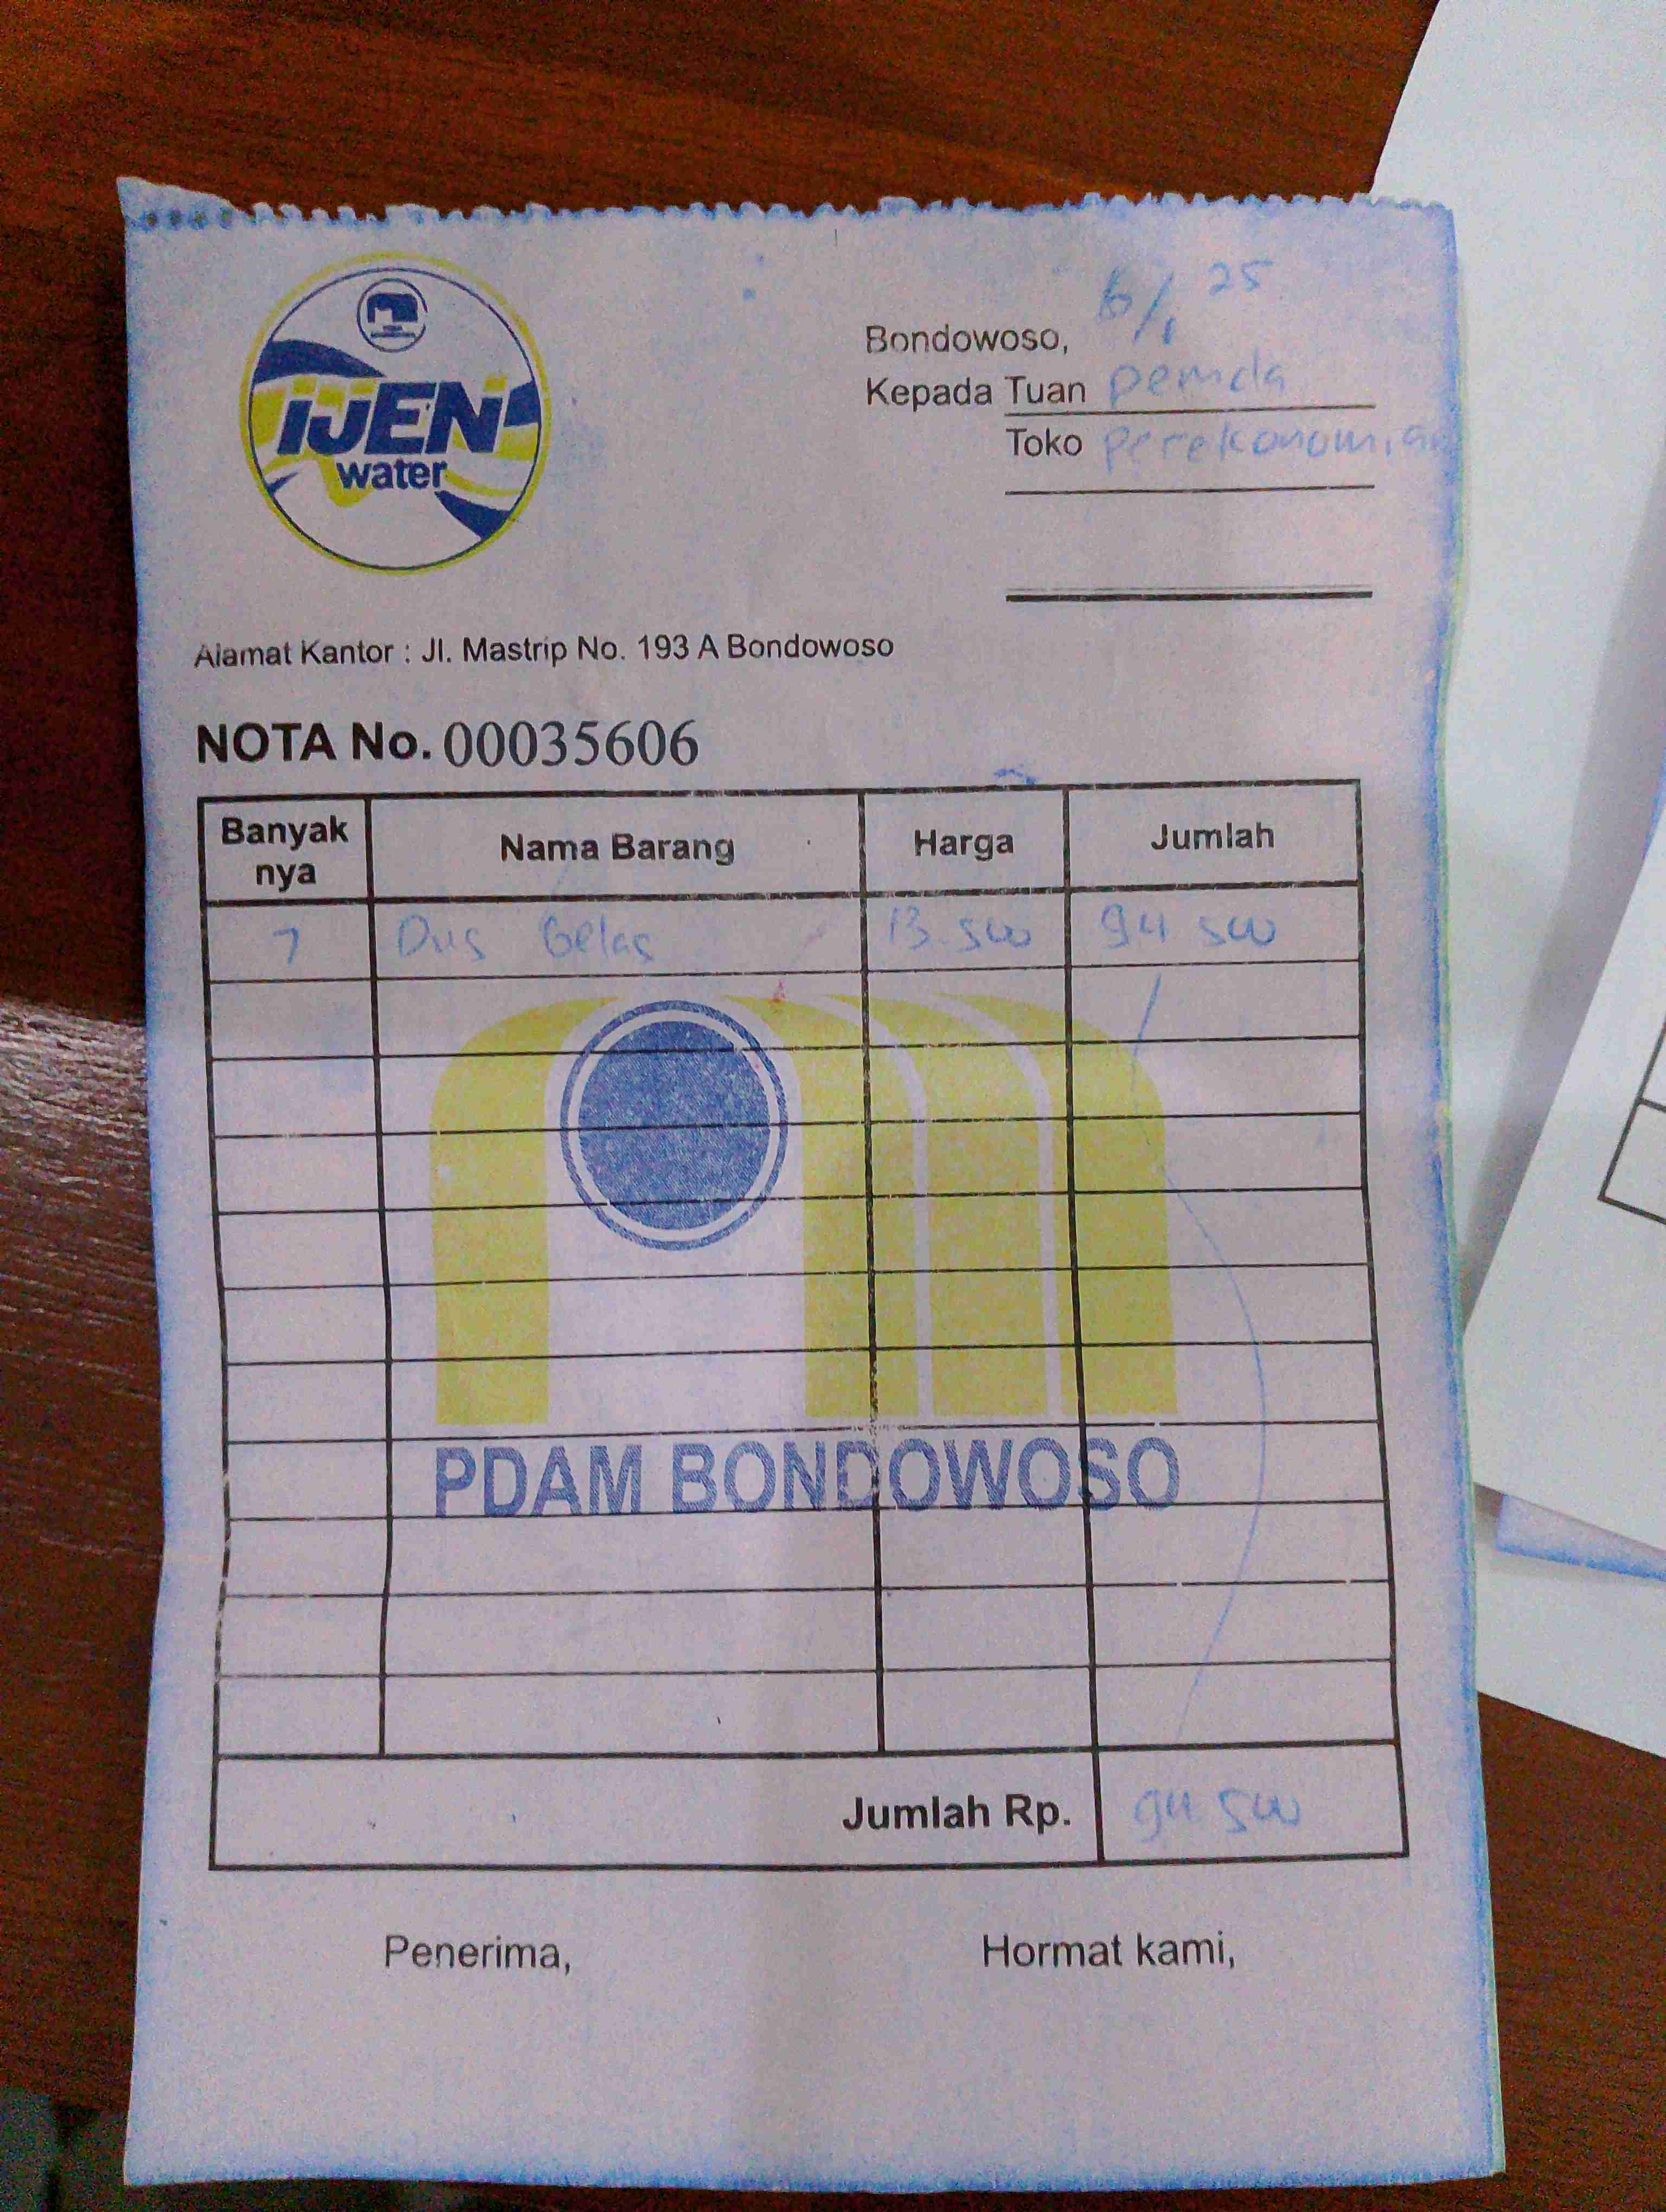 IJEN
water
Bondowoso, 6/1 25
Kepada Tuan Pemda
Toko Perekonomian
Alamat Kantor : Jl. Mastrip No. 193 A Bondowoso
NOTA No. 00035606
Banyak nya Nama Barang Harga Jumlah
7 Dus Gelas 13.500 94 500
PDAM BONDOWOSO
Jumlah Rp. 94 500
Penerima, Hormat kami,